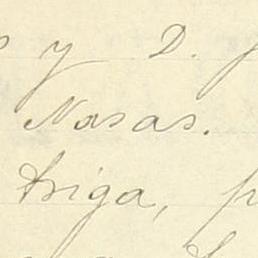 y D.
Nasas.
triga,